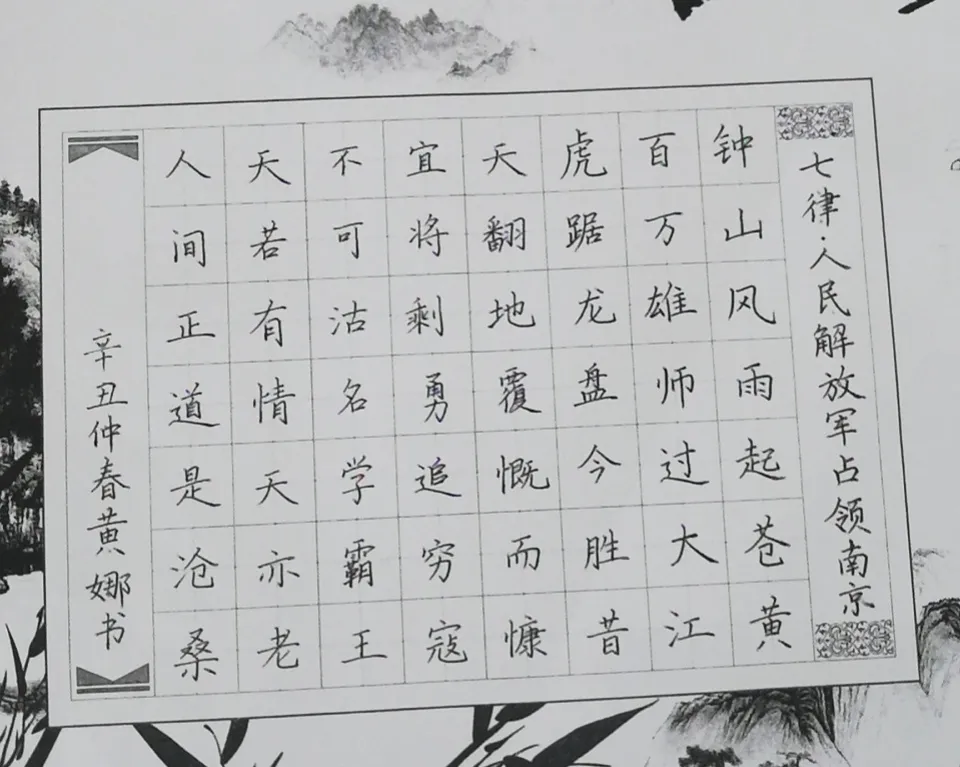 七律·人民解放军占领南京
钟山风雨起苍黄
百万雄师过大江
虎踞龙盘今胜昔
天翻地覆慨而慷
宜将剩勇追穷寇
不可沽名学霸王
天若有情天亦老
人间正道是沧桑
辛丑仲春黄娜书